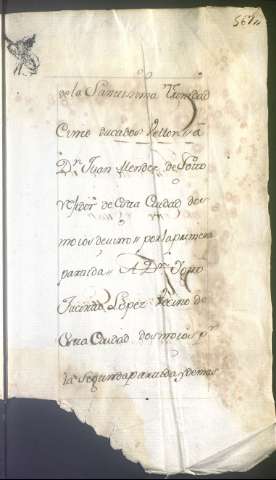 567
de la Santissima Trinidad
Cinco ducados Vellon = a
Dn Juan Mendez de Soto
Vesidor de Esta Ciudad dos
moios de vino = por la primera
partida = A Dn
Jacinto Lopez Vecino de
Esta Ciudad dos moios pr
la segunda partida y demas